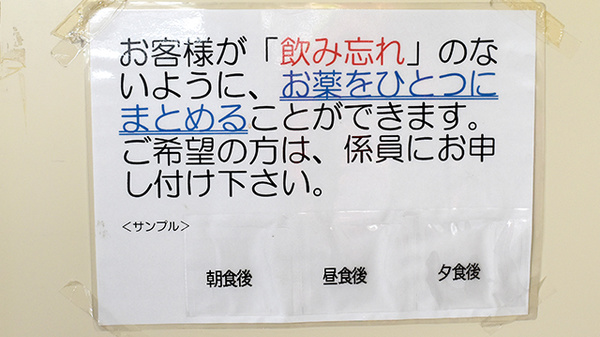 お客様が「飲み忘れ」のな
いように、お薬をひとつに
まとめることができます。
ご希望の方は、係員にお申
し付け下さい。
＜サンプル＞
朝食後 昼食後 夕食後